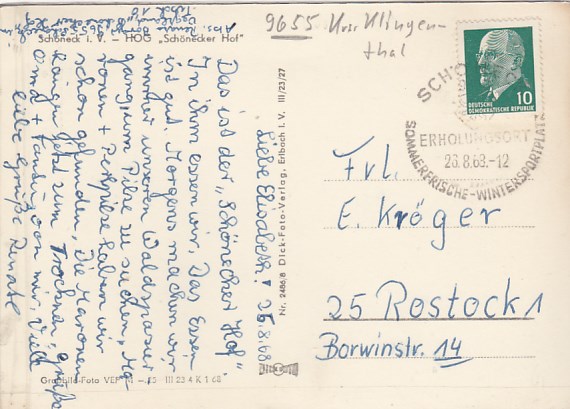 Schöneck i. V. - HOG „Schönecker Hof"
Liebe Elisabeth! 25.8.68
Das ist der „Schönecker Hof".
In ihm essen wir. Das Essen
ist gut. Morgens machen wir
immer unseren Waldspazier-
gang, um Pilze zu suchen. Ma-
ronen + Perlpilze haben wir
schon gefunden. Die Maronen
hängen jetzt zum Trocknen. Grüße
Omd + von mir. Viele
liebe Grüße Renate
Nr. 2486/8 Dick-Foto-Verlag, Erlbach i. V. III/23/27
Graphbild-Foto III 23 4 K 1 68
9655 Krs. Klingen-
thal
DEUTSCHE
DEMOKRATISCHE REPUBLIK
10
SCHÖ
ERHOLUNGSORT
26.8.68.-12
SOMMERFRISCHE-WINTERSPORTPLATZ
Frl.
E. Kröger
25 Rostock 1
Borwinstr. 14